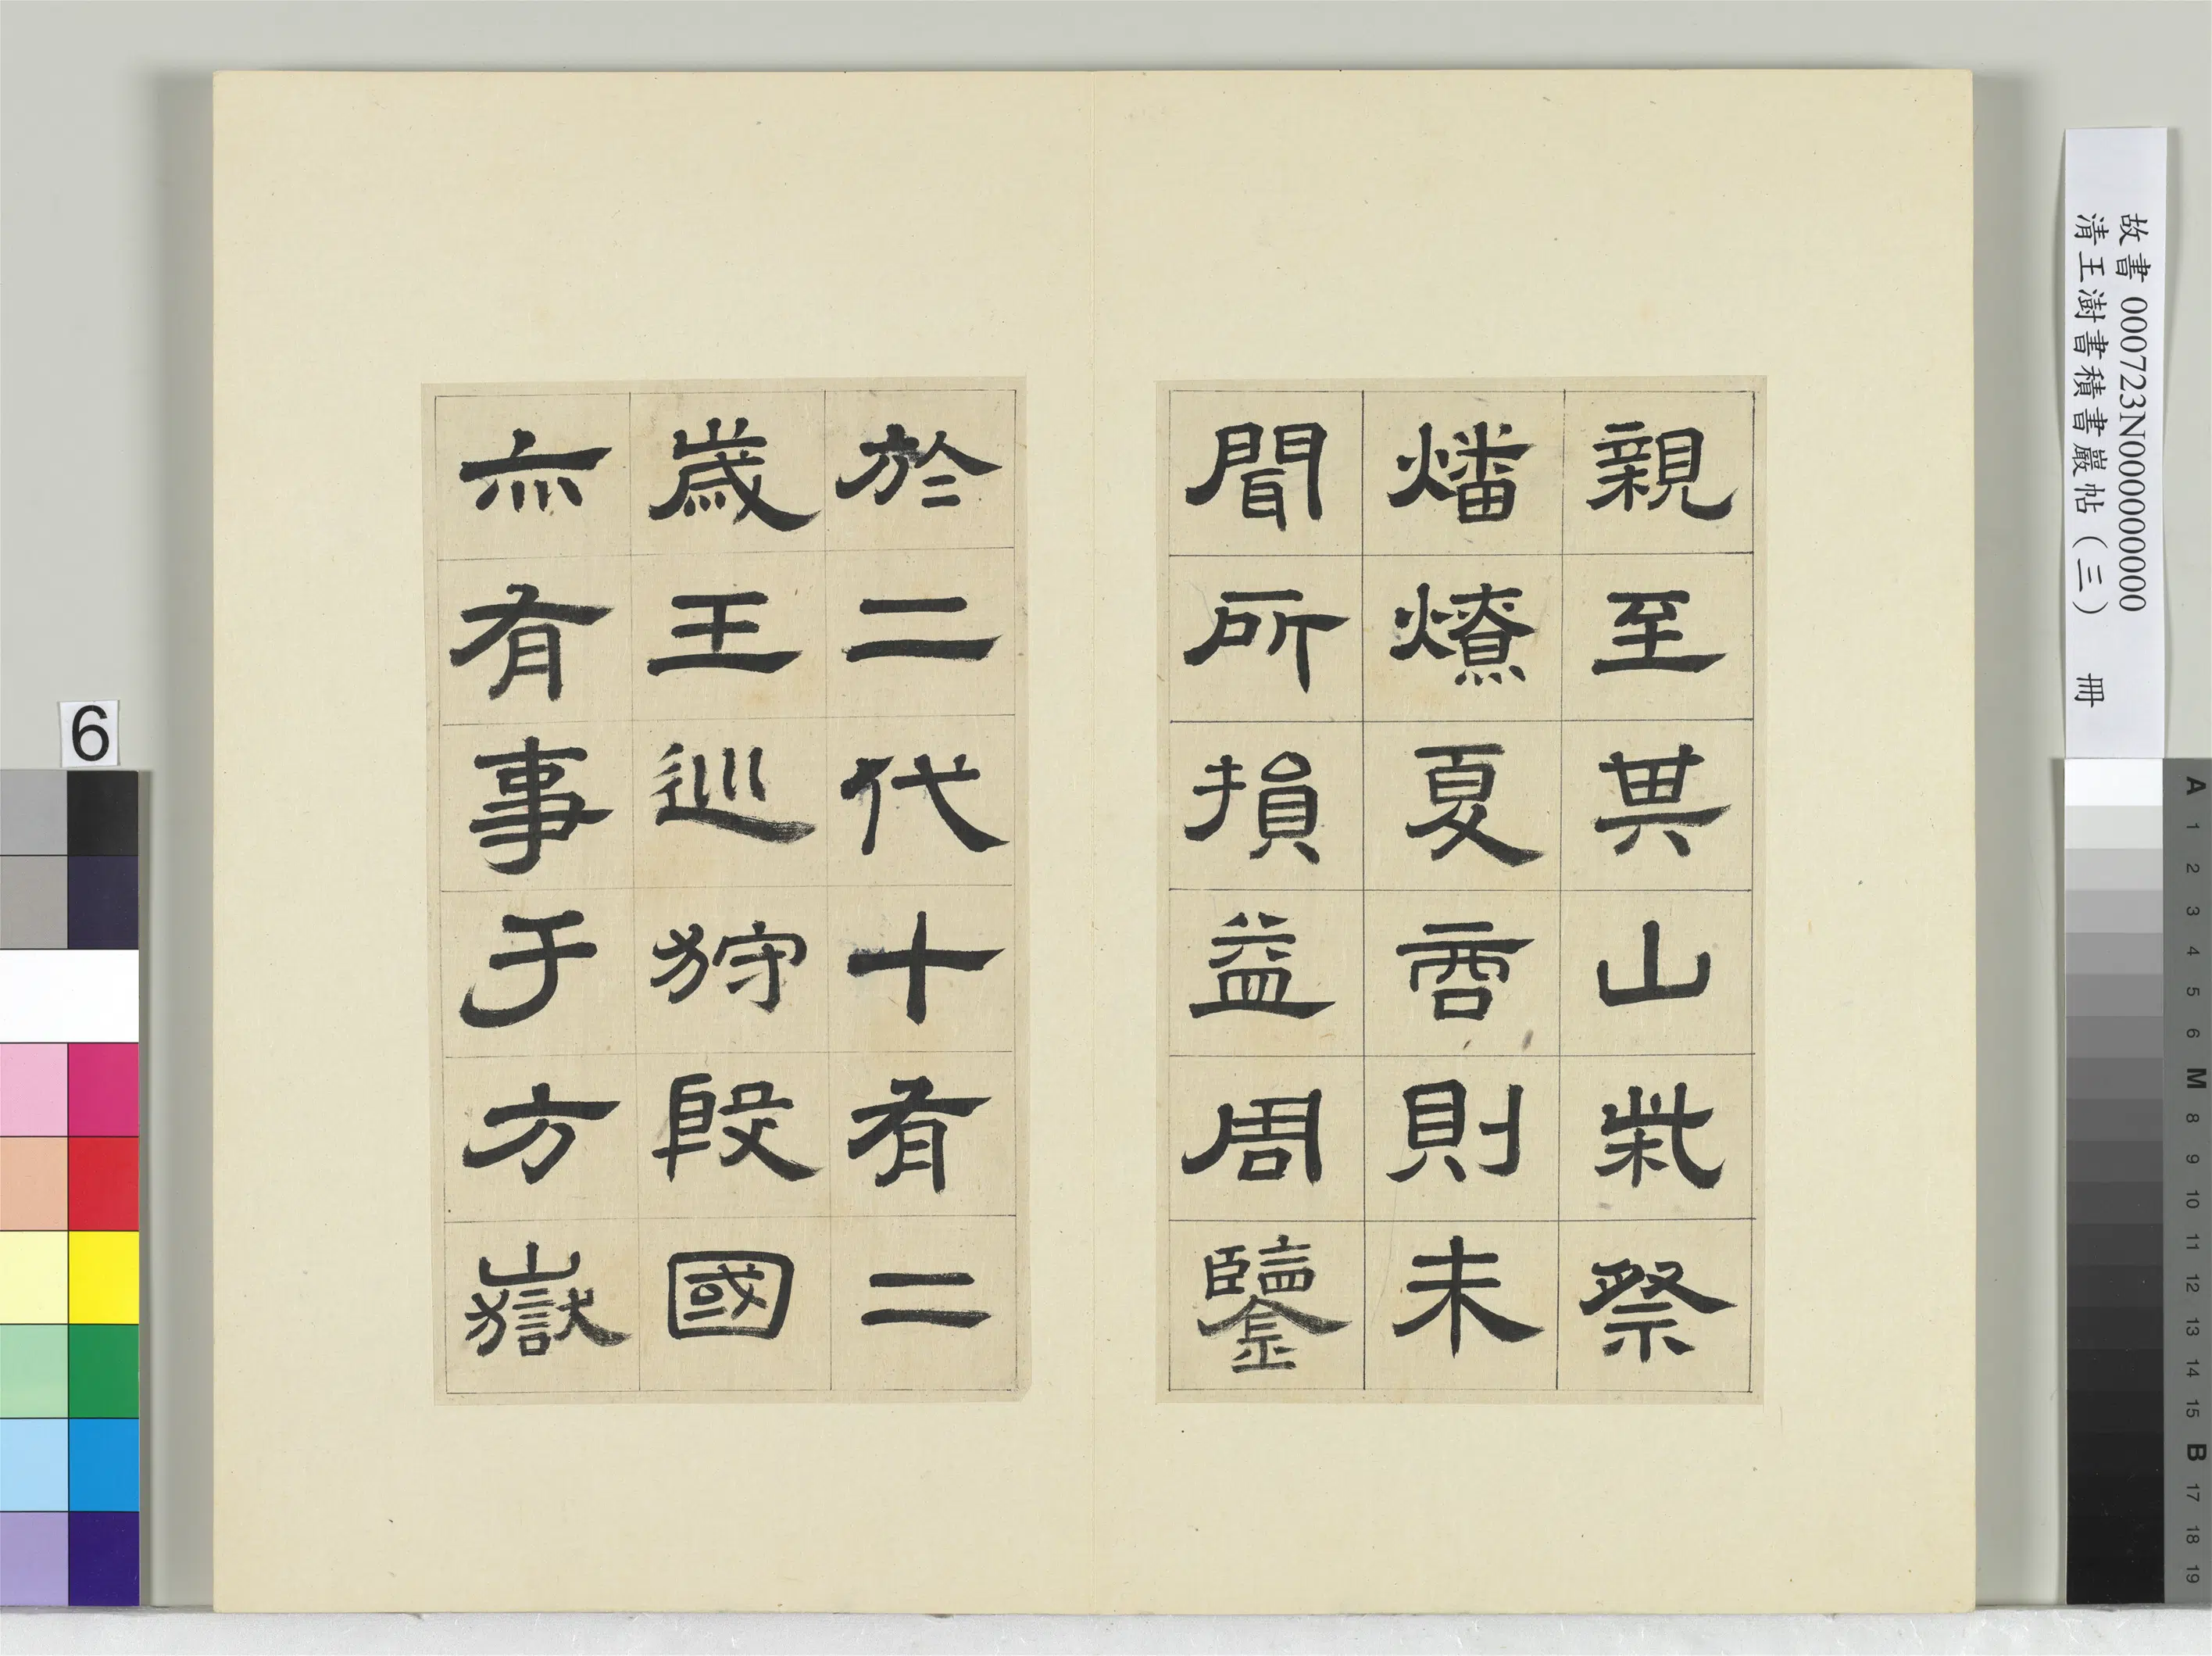 親至其山柴祭
燔燎夏商則未
聞所損益周鑒
於二代十有二
歲王巡狩殷國
亦有事于方嶽
故書 000723N000000000
清王澍書積書巖帖（三） 冊
6
A
1
2
3
4
5
6
M
8
9
10
11
12
13
14
15
B
17
18
19